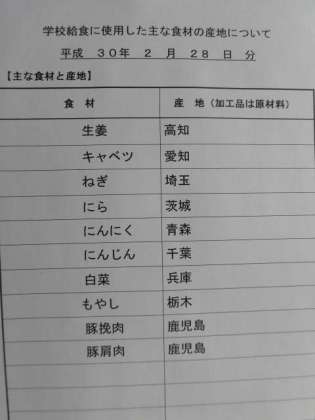 学校給食に使用した主な食材の産地について
平成 30年 2 月 28 日 分
【主な食材と産地】
食 材 産 地（加工品は原材料）
生姜 高知
キャベツ 愛知
ねぎ 埼玉
にら 茨城
にんにく 青森
にんじん 千葉
白菜 兵庫
もやし 栃木
豚挽肉 鹿児島
豚肩肉 鹿児島